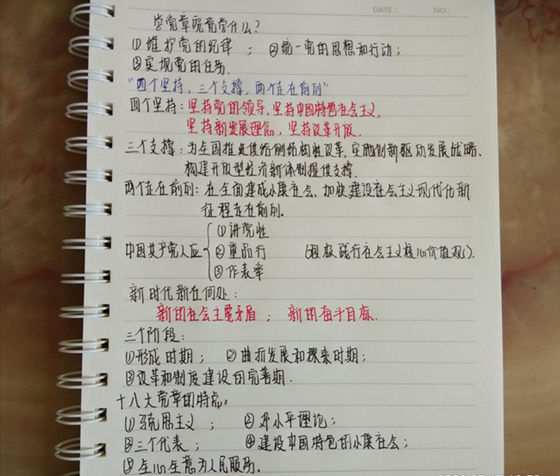 DATE: NO:
学党章究竟学什么?
①维护党的纪律; ②统一党的思想和行动;
③实现党的任务.
"四个坚持,三个支撑,两个走在前列"
四个坚持:坚持党的领导,坚持中国特色社会主义,
坚持新发展理念,坚持改革开放.
三个支撑:为全国推进供给侧结构性改革,实施创新驱动发展战略、
构建开放型经济新体制提供支撑.
两个走在前列:在全面建成小康社会、加快建设社会主义现代化新
征程走在前列.
①讲党性
中国共产党人应 ②重品行 (积极践行社会主义核心价值观).
③作表率
新时代新在何处:
新的社会主要矛盾; 新的奋斗目标.
三个阶段:
①形成时期; ②曲折发展和探索时期;
③改革和制度建设的完善期.
十八大党章的特点:
①马克思主义; ②邓小平理论;
③三个代表; ④建设中国特色的小康社会;
⑤全心全意为人民服务.